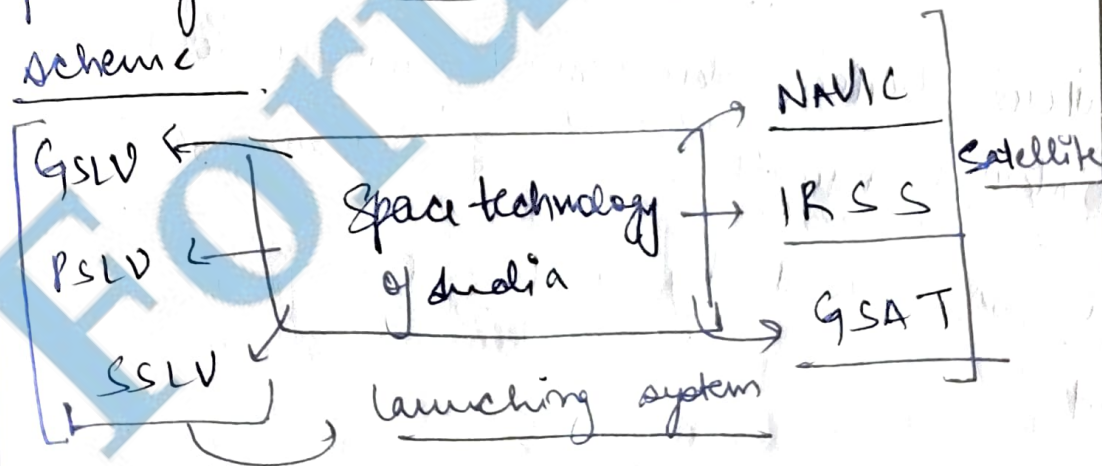 scheme
GSLV
PSLV
SSLV
Space technology
of India
NAVIC
IRSS
GSAT
Satellite
launching system